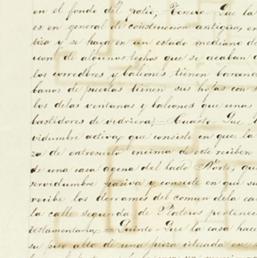 en el fondo del patio, Tercero Que la
es en general de construccion antigua, en
tiva y se haya en un estado mediano de
cion de algunos techos que se acaban de
los corredores y balcones tienen barand
banos de puertas tienen sus hojas con s
los delas ventanas y balcones que unas
bastidores de vidriera Cuarto Que
vidumbre activa, que consiste en que la
za de entresuelo encima de este reciben
de una casa agena del lado Norte, que
servidumbre pasiva y consiste en que su
recibe los derrames del comun de la ca
la calle segunda de Plateros pertenec
testamentaria Quinto Que la casa hace
su piso alto de una pieza situada en